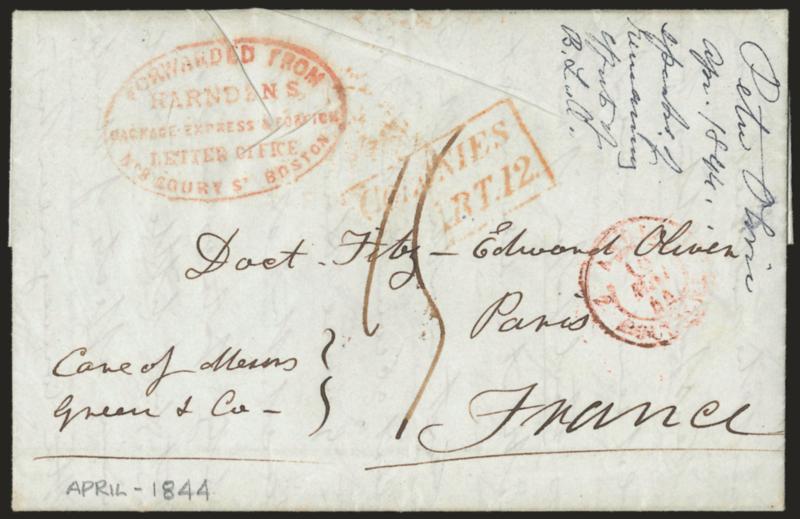 FORWARDED FROM
HARNDEN'S
PACKAGE EXPRESS & FOREIGN
LETTER OFFICE
No 8 COURT St BOSTON
COLONIES
ART.12.
15
Doct. Fitz-Edward Oliver
Paris
France
Care of Messrs
Green & Co
APRIL - 1844
Peter Oliver
Apr. 1844.
remaining
B.L.